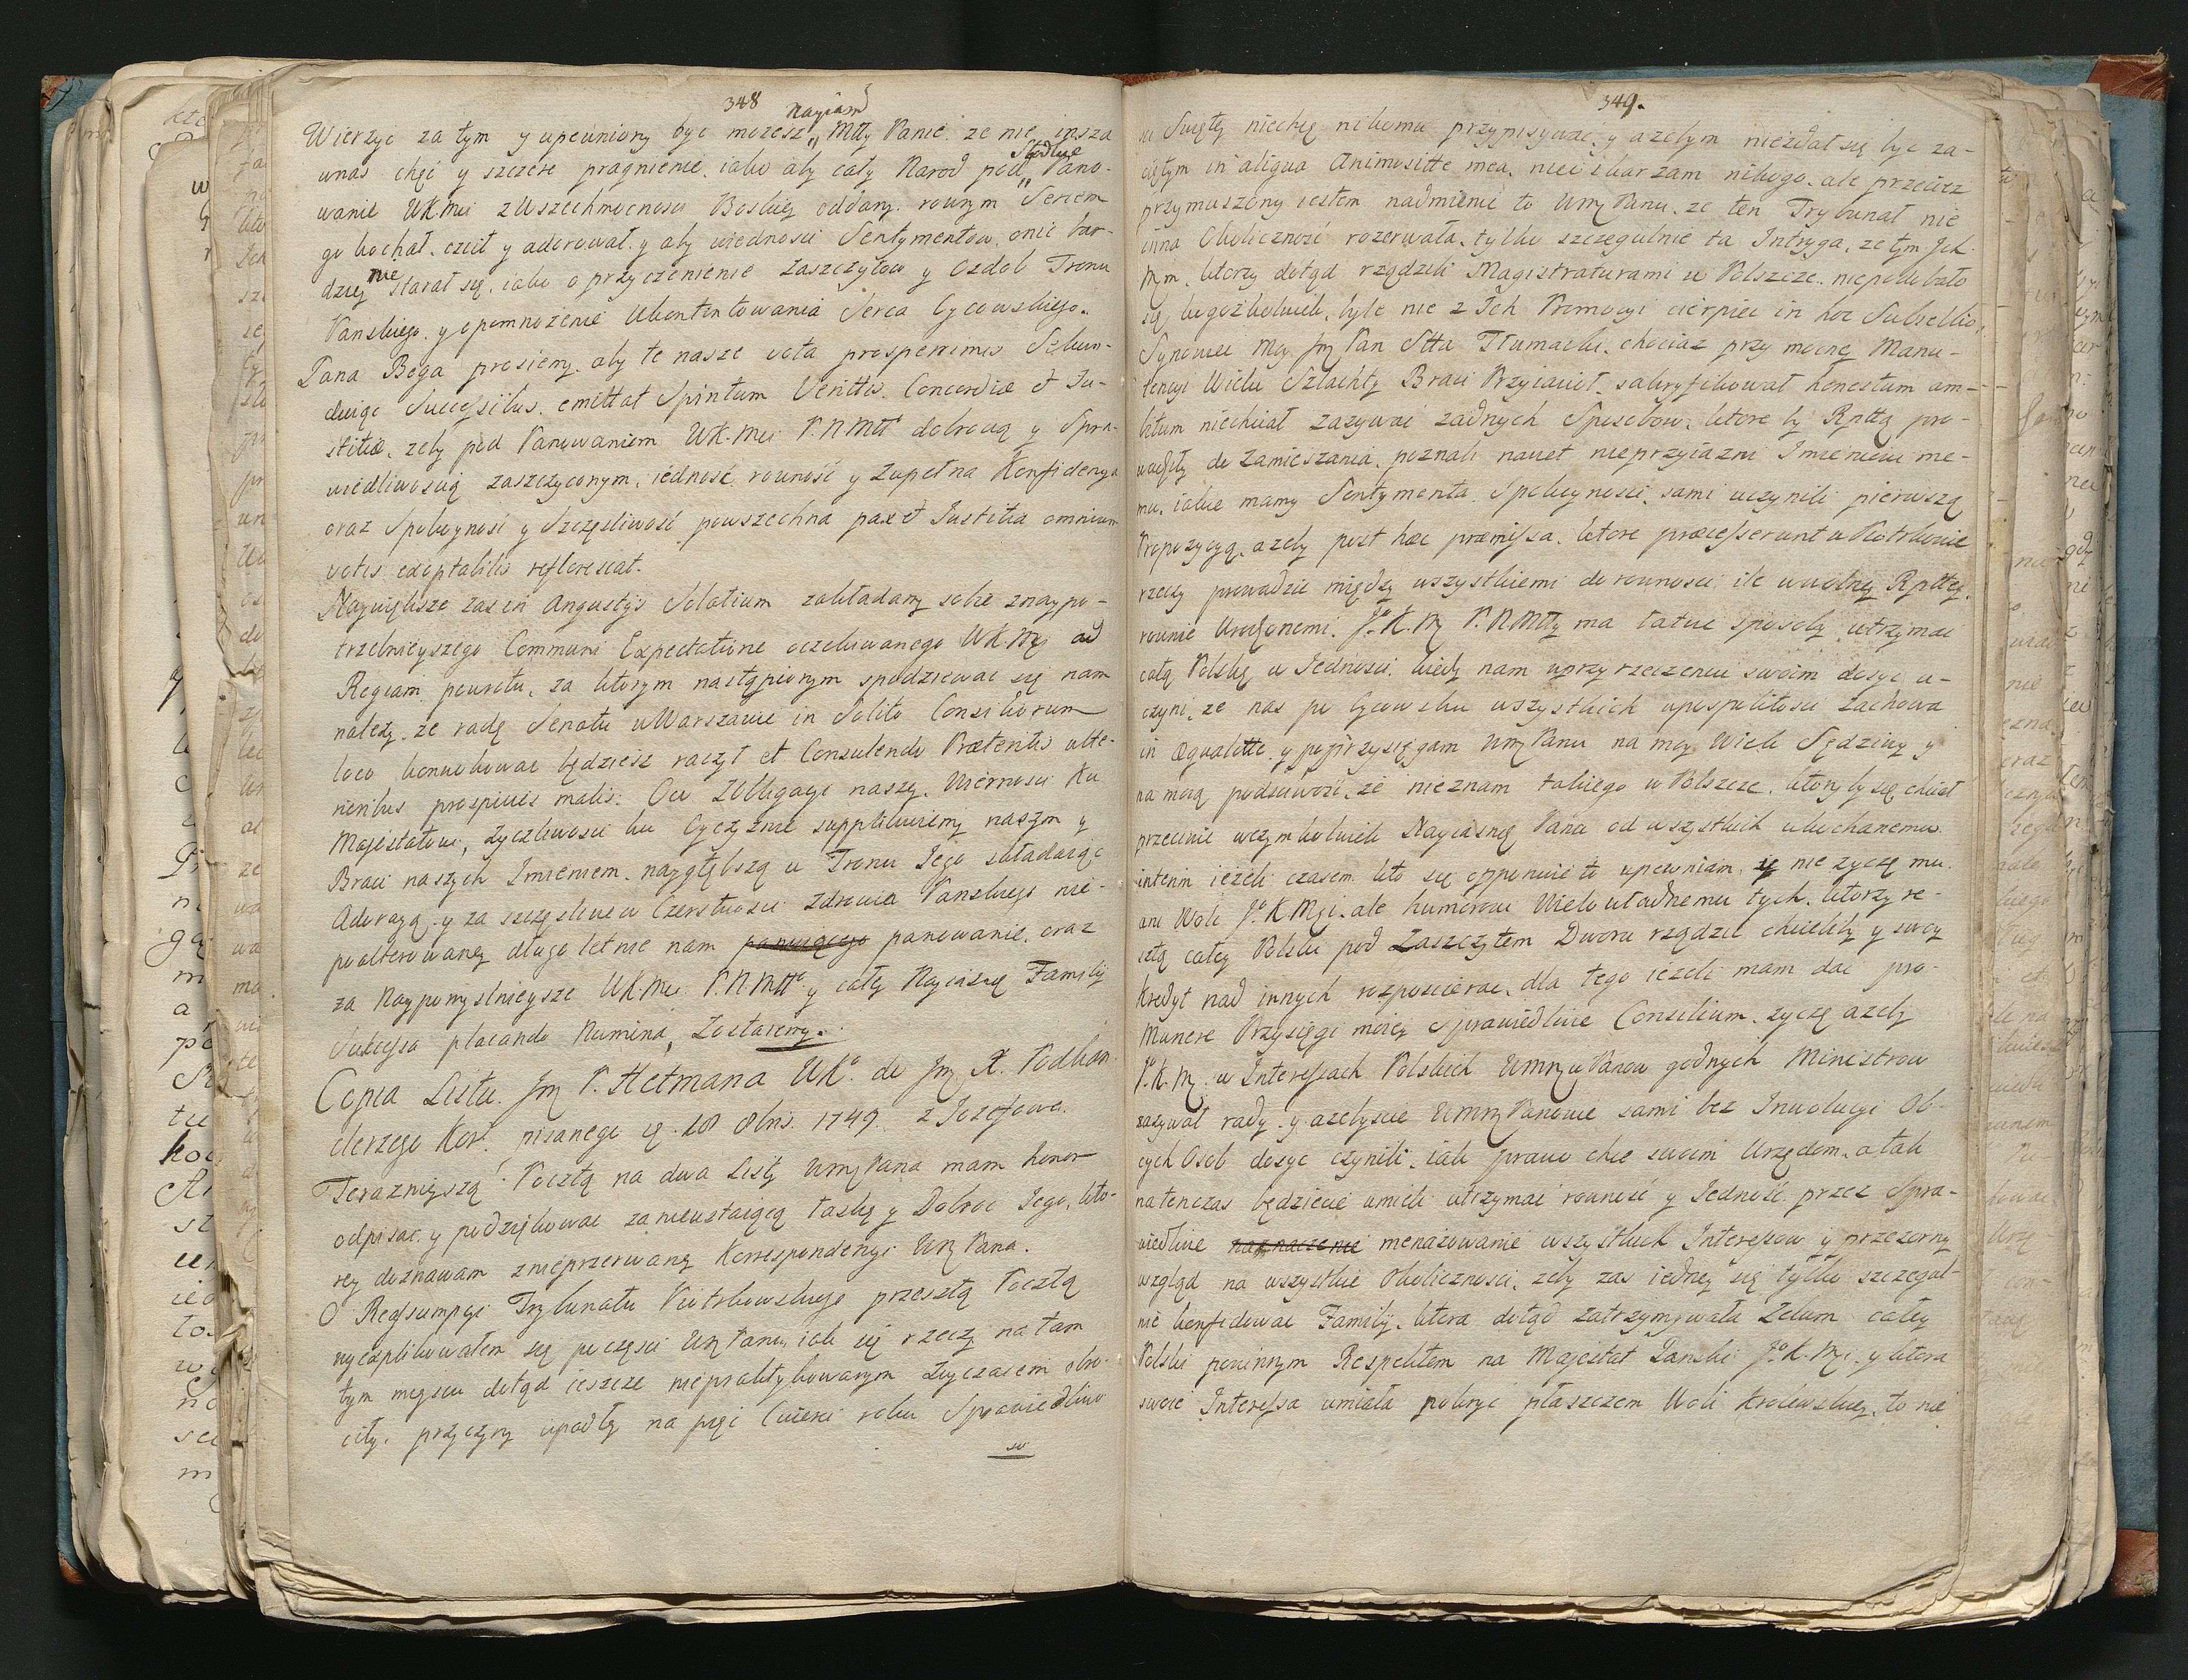 348
Wierzyc za tym y upewniony byc mozesz Nayiasń Mtty Panie. ze nie insza
unas chęć y szczere pragnienie, iako aby cały Narod pod Słodkie Pano-
wanie WKMci z Wszechmocnosci Boskiey oddany. rownym Sercem
go kochał, czcił y adorował, y aby wiednosci Sentymentow, onic bar-
dziey nie starał się, iako o przyczynienie Zaszczytow y Ozdob Tronu
Panskiego, y opomnozenie Ukontentowania Serca Oycowskiego.
Pana Boga prosiemy, aby te nasze vota prosperrimis Sekun-
duiąc Successibus, emittat Spiritum Veritatis, Concordiæ et Ju-
stitiæ, zeby pod Panowaniem WK.Mci P.N.Mttº dobrocią y Spra-
wiedliwoscią zaszczyconym, iedność rowność y Zupełna Konfidencya
oraz Spokoyność y Szczęsliwość powszechna pax et Justitia omnium
votis exoptabilis reflorescat.
Naywiększe zas in Angustys Solatium zakładamy sobie znaypo-
trzebnieyszego Communi Expectatione oczekiwanego WK.Mci ad
Regiam powrotu, za ktorym nastąpionym spodziewac się nam
nalezy, ze radę Senatu w Warszawie in Solito Consiliorum
loco konwokowac będziesz raczył et Consulendo Præteritis ulte-
rioribus prospicies malis. Oco zObligacyi naszey, Wiernosci Ku
Majestatowi, Zyczliwosci ku Oyczyznie supplikuiemy naszym y
Braci naszych Imieniem, naygłębszą u Tronu Jego składaiąc
Adoracyą, y za szczęsliwe w Czerstwosci Zdrowia Panskiego nie-
poalterowaney długo letnie nam panuiącego panowanie, oraz
za Naypomyslnieysze WK.Mci P.N.Mttº y całey Nayiasń Familij
Sukcessa placando Numina, Zostaiemy.
Copia Listu Jm P. Hetmana WKº. do Jm X. Podkan-
clerzego Kor. pisanego 18 8bris. 1749. z Jozefowa.
Teraznieyszą Pocztą na dwa Listy WmPana mam honor
odpisac, y podziękowac zanieustaiącą łaskę y Dobroc Jego, kto-
rey doznawam znieprzerwaney Korrespondencyi WmPana.
O Reassumpcyi Trybunału Piotrkowskiego przeszłą Pocztą
wyexplikowałem się poczęsci WmPanu, iak się rzeczy na tam
tym mieyscu dotąd ieszcze niepraktykowanym Zwyczaiem obro-
ciły, przyczyny upadłey na pięć Cwierci roku Sprawiedliwo
sci
349.
w Swiętey niechcę nikomu przypisywac, y azebym niezdał się byc za-
ciętym in aliqua Animositte mea, nieoskarzam nikogo, ale przeciez
przymuszony iestem nadmienić to WmPanu, ze ten Trybunał nie
inna Okoliczność rozerwała, tylko szczegulnie ta Intryga, ze tym Ich
Mm. ktorzy dotąd rządzili Magistraturami w Polszcze, niepodobało
się kogozkolwiek, byle nie z Ich Promocyi cierpiec in hoc Subsellio,
Synowiec Moy Jm Pan Stta Tłumacki, chociaz przy mocney Manu-
tencyi Wielu Szlachty Braci Przyiacioł, sakryfikował honestum am-
bitum niechciał zazywać zadnych Sposobow, ktore by Rpttą pro-
wadziły do Zamieszania, poznali nawet nieprzyiazni Imieniowi me-
mu, iakie mamy Sentymenta Spokoynosci, sami uczynili pierwszą
Propozycyą, azeby post hæc præmissa, ktore præcesserunt w Piotrkowie
rzeczy prowadzic między wszystkiemi do rownosci ile wwolney Rpttey,
rownie Urodzonemi. Jº.K.M P.N.Mtty ma łatwe sposoby utrzymać
całą Polskę w Iednosci, kiedy nam wprzyrzeczeniu swoim dosyc u-
czyni, ze nas po Oycowsku wszystkich wpospolitosci zachowa
in Æqualitte, y poprzysięgam WmPanu na moy Wiek Sędziwy y
na moią podsciwość, ze nieznam takiego w Polszcze, ktoryby się chciał
przeciwic wczymkolwiek Nayiasń Panu od wszystkich ukochanemu.
interim iezeli czasem kto się opponuie to upewniam, nie zyczę mu.
ani Woli Jº.K.Mci, ale humorowi Wielowładnemu tych, ktorzy re-
sztą całey Polski pod Zaszczytem Dworu rządzic chcieliby y swoy
Kredyt nad innych rozposcierac, dla tego iezeli mam dać pro
Munere Przysięgi moiey Sprawiedliwe Consilium, zyczę azeby
Jº.K.M. w Interessach Polskich WmmPanow godnych Ministrow
zazywał rady, y azebyscie WmmPanowie sami bez Inwolucyi Ob-
cych Osob dosyc czynili, iak prawo chce swoim Urzędom, a tak
natenczas będziecie umieli utrzymać rowność y Iedność przez Spra-
wiedliwe naznaczenie menazowanie wszystkich Interessow y przezorny
wzgląd na wszystkie Okolicznosci, zeby zas iedney się tylko szczegul-
nie konfidowac Familij, ktora dotąd zatrzymywała Zelum całey
Polski powinnym Respektem na Majestat Panski Jº.K.Mci, y ktora
swoie Interessa umiała pokryc płaszczem Woli Krolewskiey, to nie